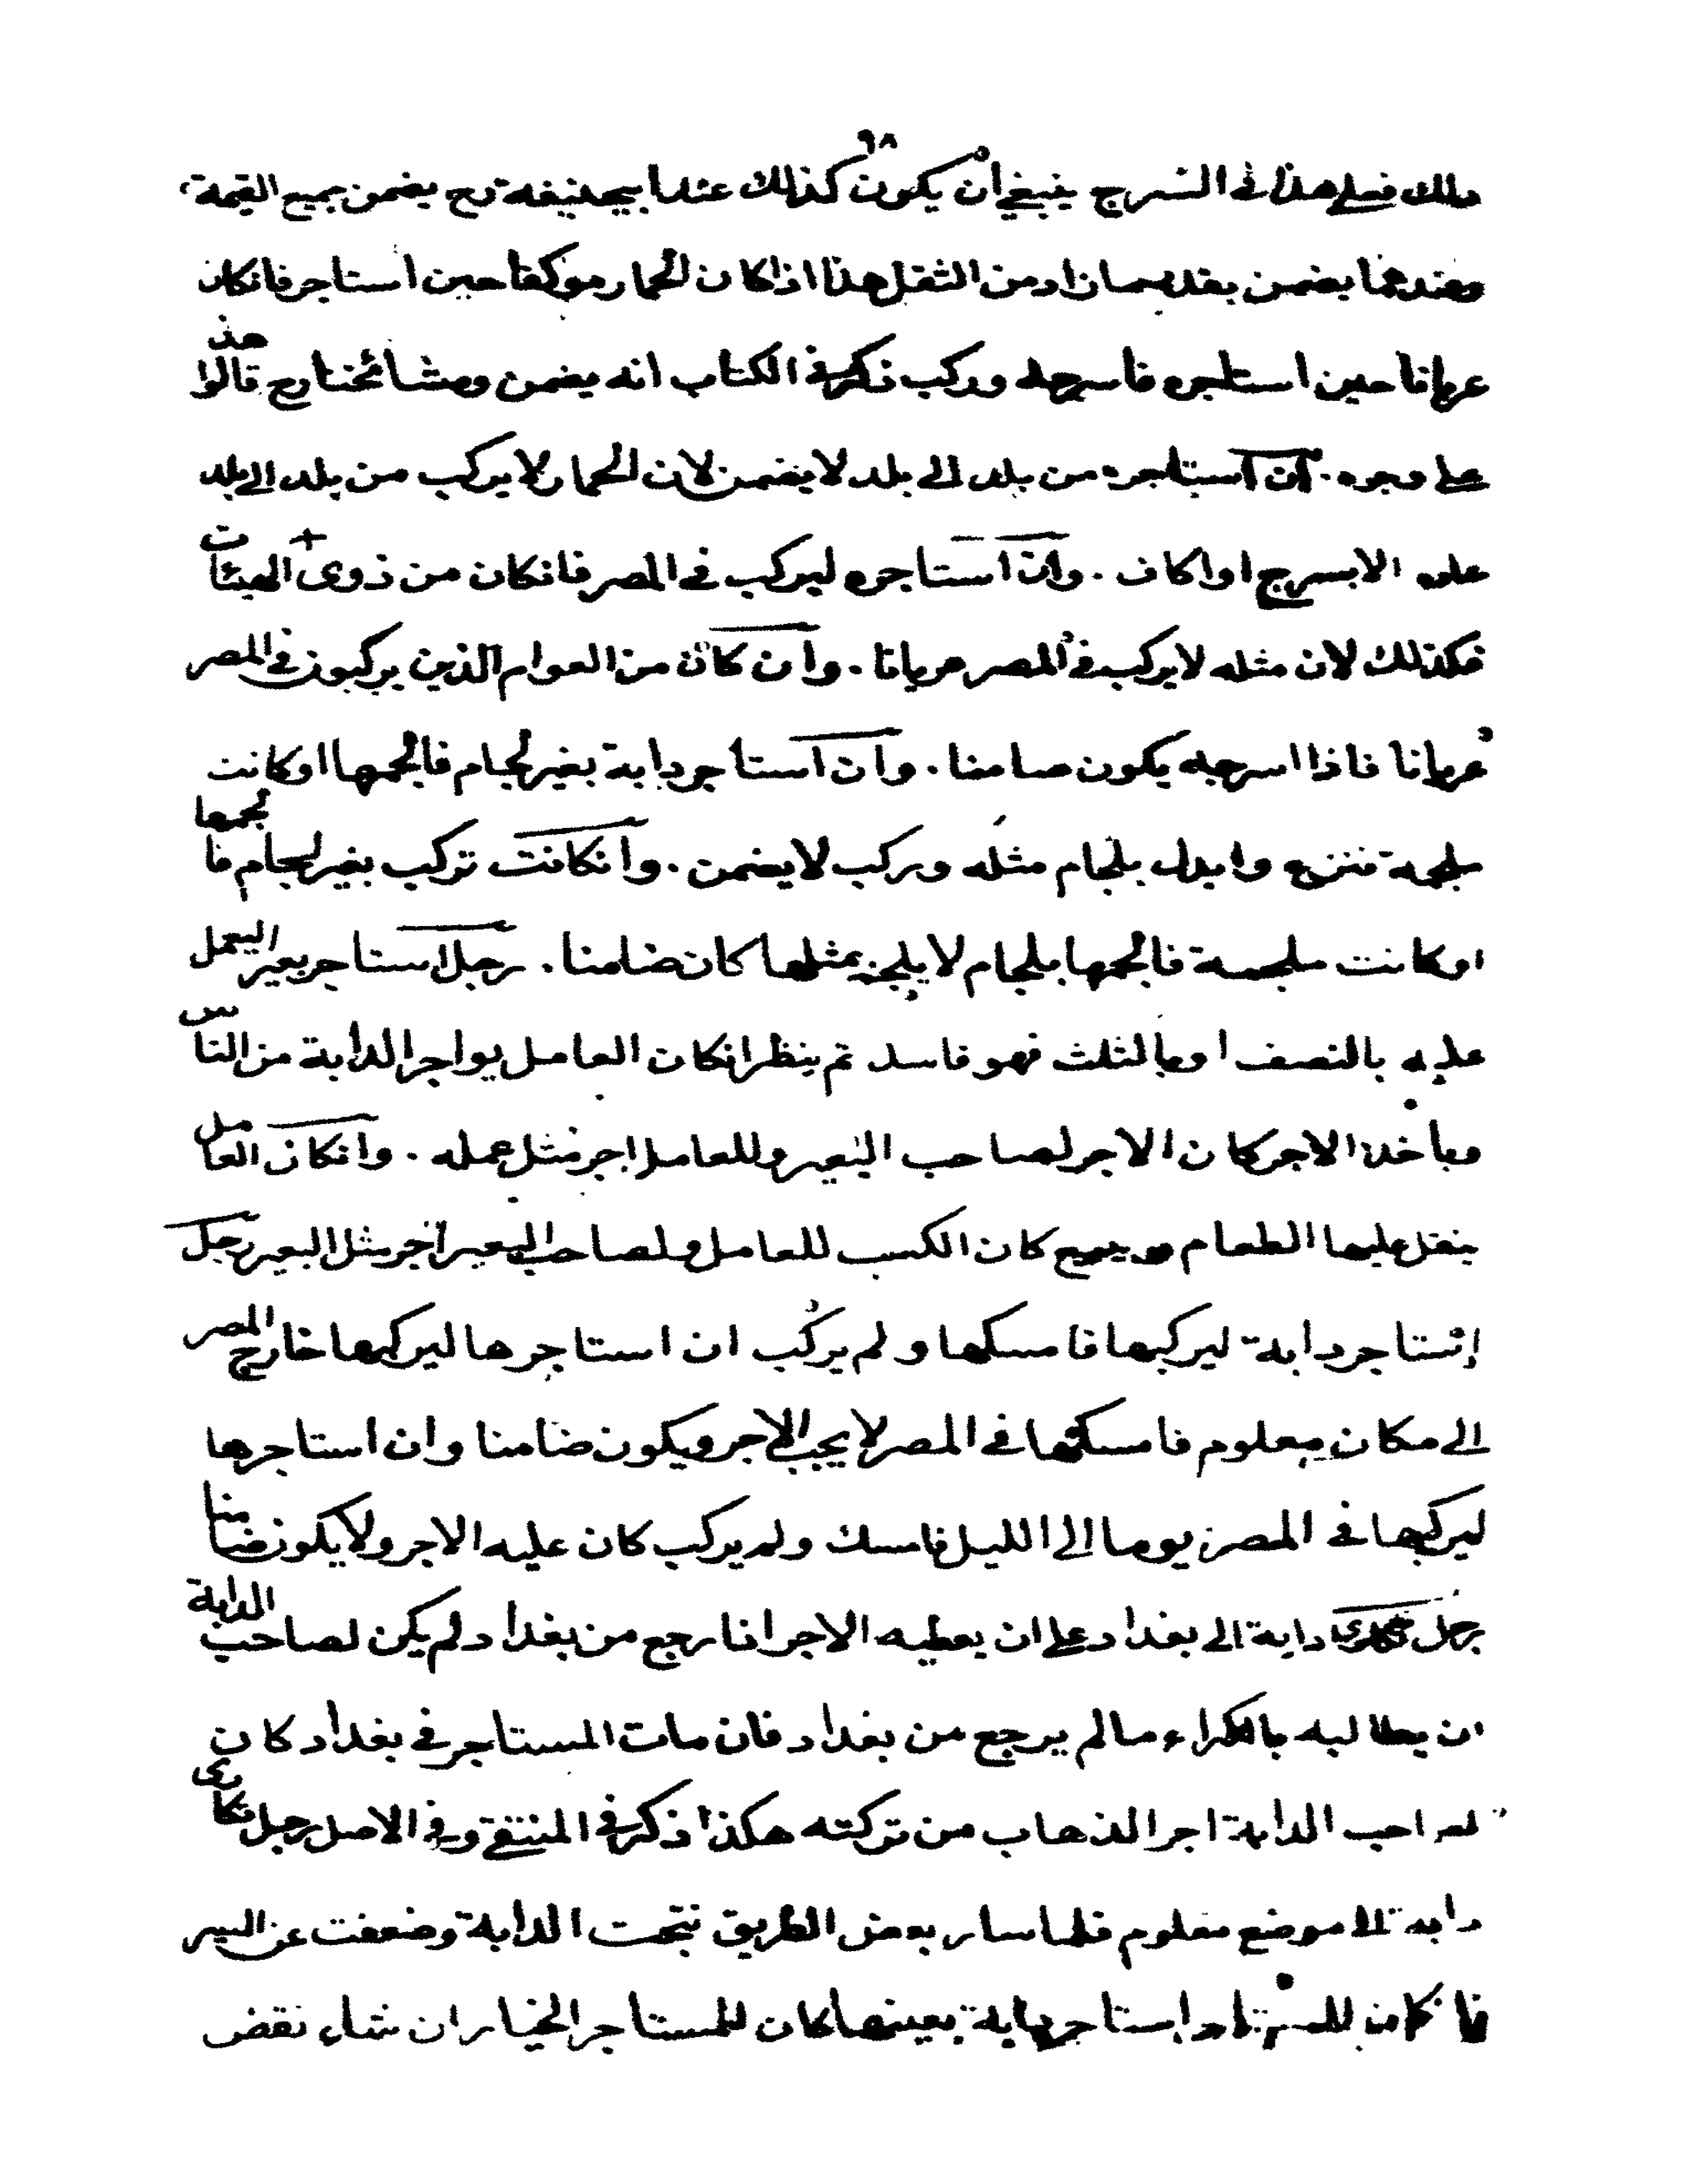 ٦٨
ذلك فعلى هذا فى السرج ينبغى ان يكون كذلك عند ابيحنيفه رح يضمن جميع القيمة
وعندهما يضمن بقدر ما زاد من الثقل هذا اذا كان الحمار موكفا حين استاجر فانكان
عريانا حين استاجره فاسرجه وركب ذكر فى الكتاب انه يضمن ومشائخنا رح قالوا هذا
على وجوه . ان استاجره من بلد الى بلد لا يضمن لان الحمار لا يركب من بلد الى بلد
عليه الا بسرج او اكاف . وان استاجره ليركب فى المصر فانكان من ذوى الهيئات
فكذلك لان مثله لا يركب فى المصر عريانا . وان كان من العوام الذين يركبون فى المصر
عريانا فاذا اسرجه يكون ضامنا . وان استاجر دابة بغير لجام فالجمها او كانت
ملجمة فنزع وابدل بلجام مثله وركب لا يضمن . وانكانت تركب بغير لجام فالجمها
او كانت ملجمة فالجمها بلجام لا يلجم بمثلها كان ضامنا . رجل استاجر بعير اليعمل
عليه بالنصف او بالثلث فهو فاسد ثم ينظر انكان العامل يواجر الدابة من الناس
وياخذ الاجر كان الاجر لصاحب البعير وللعامل اجر مثل عمله . وانكان العامل
ينقل عليها الطعام ويبيع كان الكسب للعامل ولصاحب البعير اجر مثل البعير رجل
استاجر دابة ليركبها فامسكها و لم يركب ان استاجرها ليركبها خارج المصر
الى مكان معلوم فامسكها فى المصر لا يجب الاجر ويكون ضامنا وان استاجرها
ليركبها فى المصر يوما الى الليل فامسك ولم يركب كان عليه الاجر ولا يكون ضامنا
رجل تكارى دابة الى بغداد على ان يعطيه الاجر اذا رجع من بغداد لم يكن لصاحب الدابة
ان يطالبه بالكراء ما لم يرجع من بغداد فان مات المستاجر فى بغداد كان
لصاحب الدابة اجر الذهاب من تركته هكذا ذكر فى المنتقى وفى الاصل رجل تكارى
دابة الى موضع معلوم فلما سار بعض الطريق نتجت الدابة وضعفت عن السير
فانكان استاجر دابة بعينها كان للمستاجر الخيار ان شاء نقض